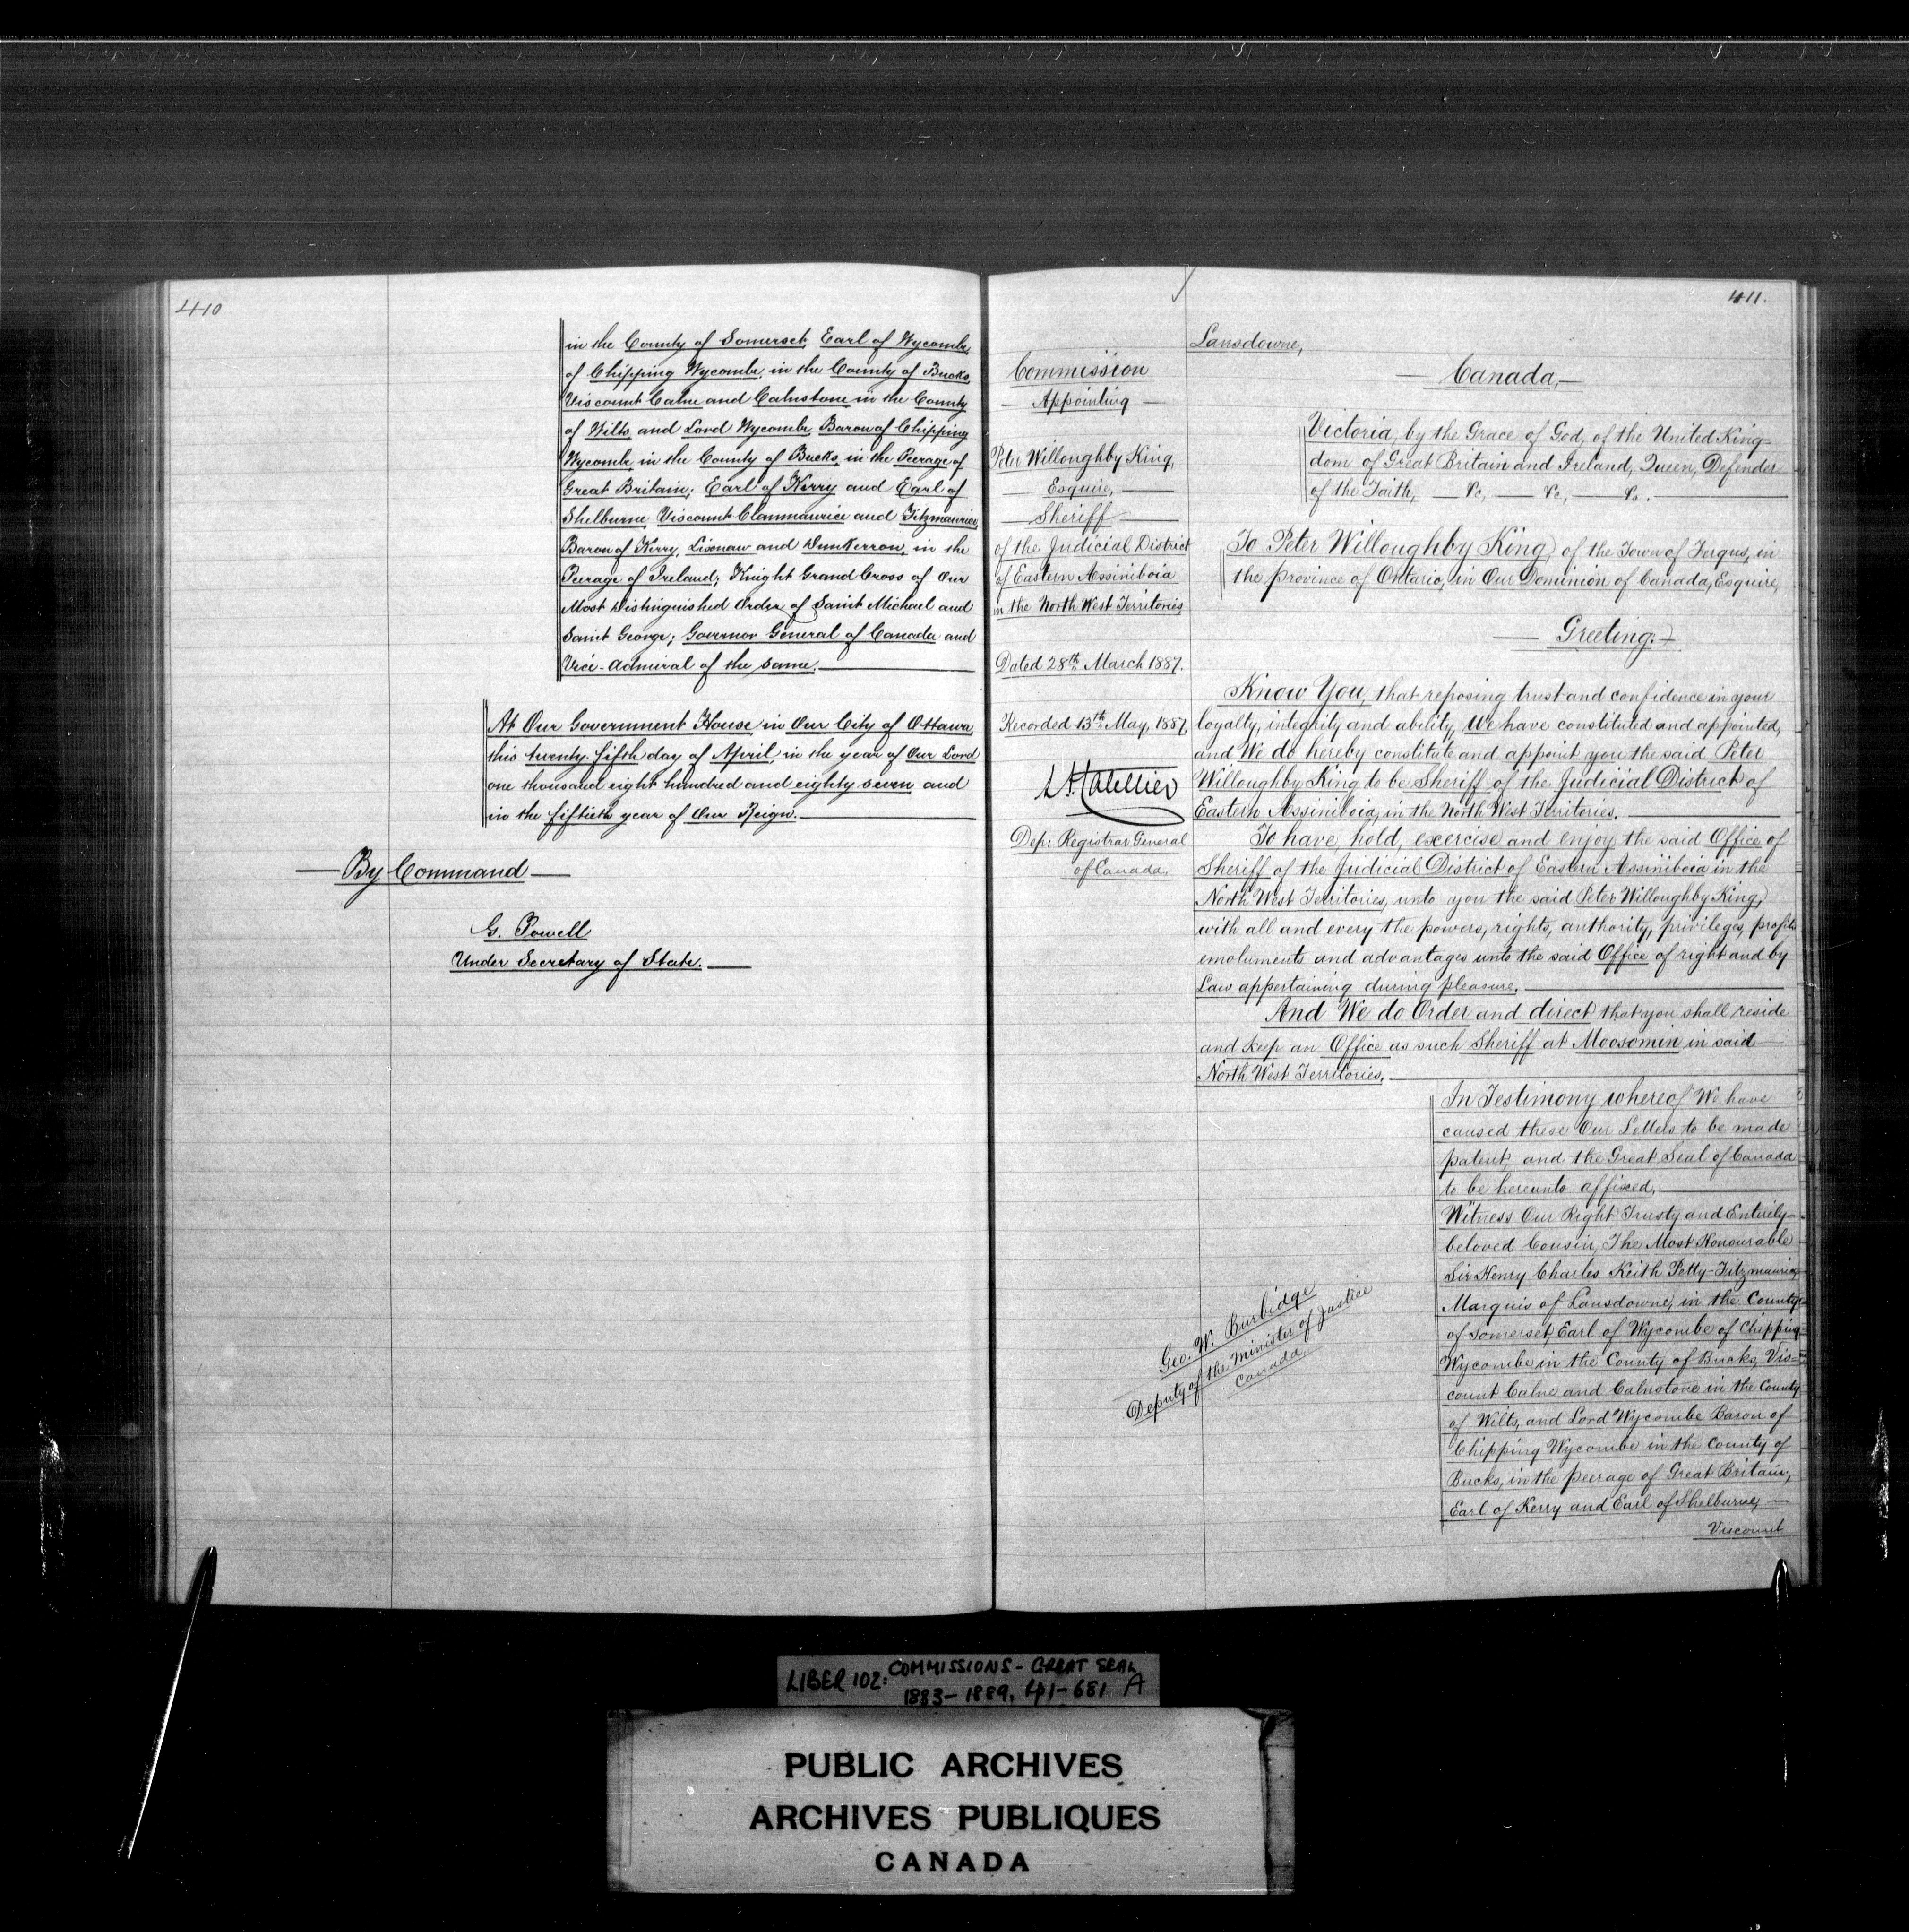 410
in the County of Somerset, Earl of Wycombe,
of Chipping Wycombe, in the County of Bucks,
Viscount Calne and Calnstone in the County
of Wilts, and Lord Wycombe, Baron of Chipping
Wycombe, in the County of Bucks, in the Peerage of
Great Britain; Earl of Kerry and Earl of
Shelburne, Viscount Clanmaurice and Fitzmaurice,
Baron of Kerry, Lixnaw and Dunkerron, in the
Peerage of Ireland; Knight Grand Cross of Our
Most Distinguished Order of Saint Michael and
Saint George; Governor General of Canada and
Vice-Admiral of the same.
At Our Government House, in Our City of Ottawa,
this twenty-fifth day of April, in the year of Our Lord
one thousand eight hundred and eighty seven and
in the fiftieth year of Our Reign.
By Command
G. Powell
Under Secretary of State.
411.
Commission
Appointing
Peter Willoughby King,
Esquire,
Sheriff
of the Judicial District
of Eastern Assiniboia
in the North West Territories
Dated 28th March 1887.
Recorded 13th May, 1887.
Depr Registrar General
of Canada.
Lansdowne,
Canada,
Victoria, by the Grace of God, of the United King=
dom of Great Britain and Ireland, Queen, Defender
of the Faith, &c, &c, &c.
To Peter Willoughby King, of the Town of Fergus, in
the province of Ontario, in Our Dominion of Canada, Esquire,
Greeting:
Know You, that reposing trust and confidence in your
loyalty, integrity and ability, We have constituted and appointed,
and We do hereby constitute and appoint you the said Peter
Willoughby King to be Sheriff of the Judicial District of
Eastern Assiniboia, in the North West Territories.
To have, hold, exercise and enjoy the said Office of
Sheriff of the Judicial District of Eastern Assiniboia in the
North West Territories, unto you the said Peter Willoughby King,
with all and every the powers, rights, authority, privileges, profits
emoluments and advantages unto the said Office of right and by
Law appertaining during pleasure.
And We do Order and direct that you shall reside
and keep an Office as such Sheriff at Moosomin in said
North West Territories.
In Testimony whereof We have
caused these Our Letters to be made
patent, and the Great Seal of Canada
to be hereunto affixed.
Witness Our Right Trusty and Entirely
beloved Cousin, The Most Honourable
Sir Henry Charles Keith Petty-Fitzmaurice,
Marquis of Lansdowne, in the County
of Somerset, Earl of Wycombe of Chipping
Wycombe in the County of Bucks, Vis=
count Calne and Calnstone in the County
of Wilts, and Lord Wycombe Baron of
Chipping Wycombe in the County of
Bucks, in the peerage of Great Britain;
Earl of Kerry and Earl of Shelburne,
Viscount
Geo. W. Burbidge
Deputy of the Minister of Justice
Canada.
LIBER 102: COMMISSIONS - GREAT SEAL
1883-1889, pp1-681 A
PUBLIC ARCHIVES
ARCHIVES PUBLIQUES
CANADA